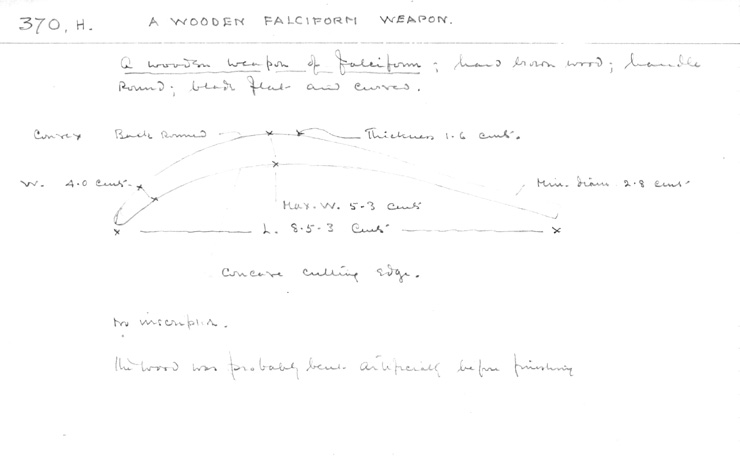 370, H. A WOODEN FALCIFORM WEAPON.
A wooden weapon of falciform; hard brown wood; handle
Round; blade flat and curved.
Convex Back Round Thickness 1.6 cents.
W. 4.0 cents. Min. diam. 2.8 cents
Max. W. 5.3 cents
L. 8.5.3 cents
Concave cutting edge.
No inscription.
The wood was probably bent artificially before finishing